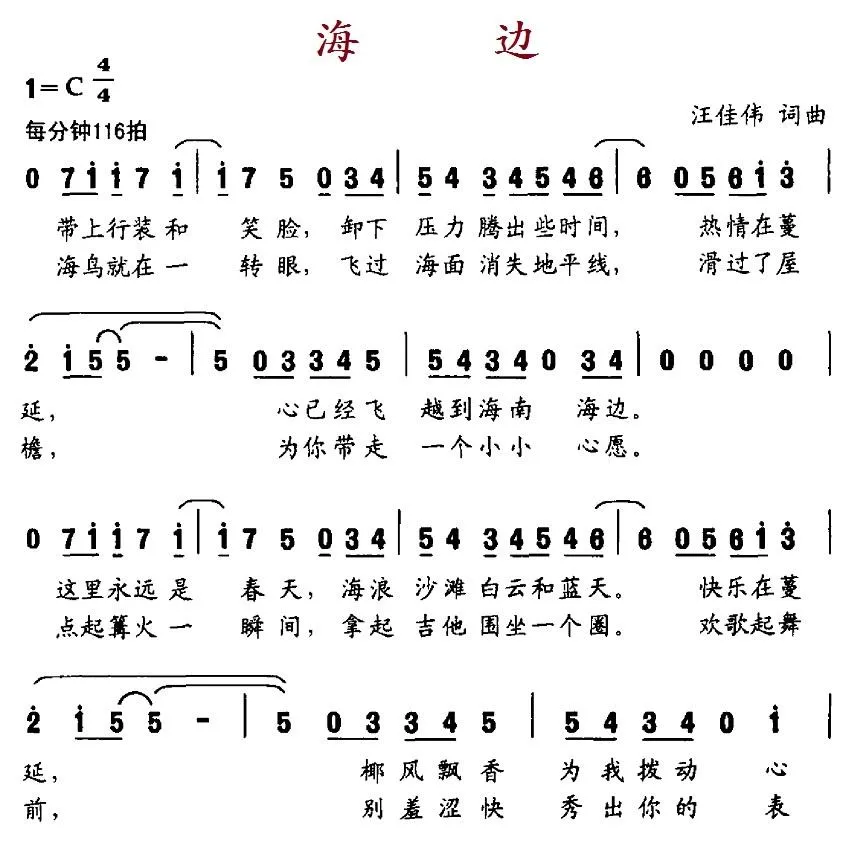 海 边
1=C 4/4
每分钟116拍
汪佳伟 词曲
0 7 1 1 7 1 | 1 7 5 0 3 4 | 5 4 3 4 5 4 6 | 6 0 5 6 1 3 |
带上行装和 笑脸，卸下 压力腾出些时间， 热情在蔓
海鸟就在一 转眼，飞过 海面消失地平线， 滑过了屋
2 1 5 5 - | 5 0 3 3 4 5 | 5 4 3 4 0 3 4 | 0 0 0 0 |
延， 心已经飞 越到海南 海边。
檐， 为你带走 一个小小 心愿。
0 7 1 1 7 1 | 1 7 5 0 3 4 | 5 4 3 4 5 4 6 | 6 0 5 6 1 3 |
这里永远是 春天，海浪 沙滩白云和蓝天。 快乐在蔓
点起篝火一 瞬间，拿起 吉他围坐一个圈。 欢歌起舞
2 1 5 5 - | 5 0 3 3 4 5 | 5 4 3 4 0 1 |
延， 椰风飘香 为我拨动 心
前， 别羞涩快 秀出你的 表